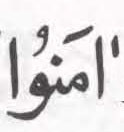 "اٰمَنُوْا